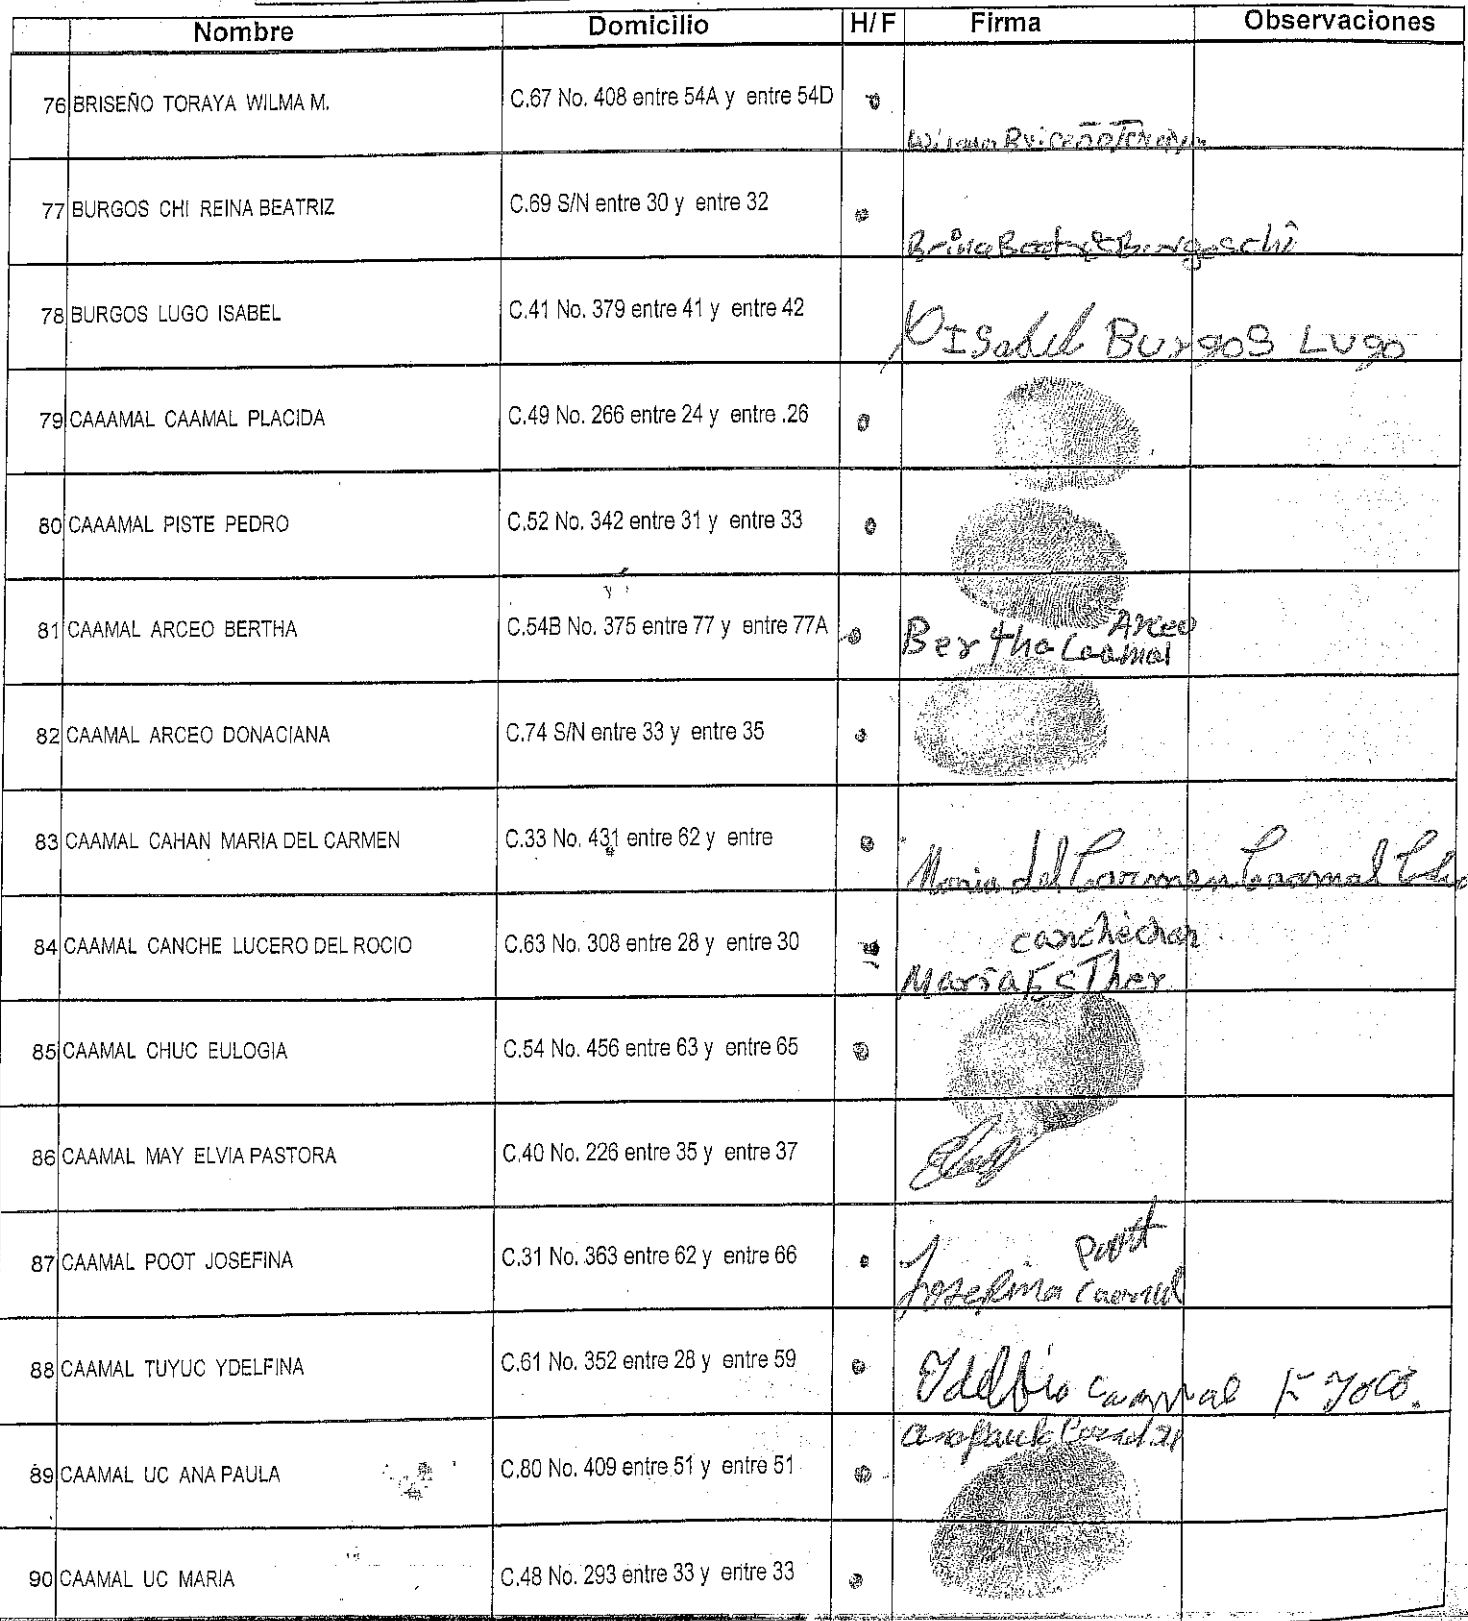 Nombre Domicilio H/F Firma Observaciones
76 BRISEÑO TORAYA WILMA M. C.67 No. 408 entre 54A y entre 54D
Wilma Briceño Toraya
77 BURGOS CHI REINA BEATRIZ C.69 S/N entre 30 y entre 32
Burgos chi
78 BURGOS LUGO ISABEL C.41 No. 379 entre 41 y entre 42
Isabel Burgos Lugo
79 CAAAMAL CAAMAL PLACIDA C.49 No. 266 entre 24 y entre .26
80 CAAAMAL PISTE PEDRO C.52 No. 342 entre 31 y entre 33
81 CAAMAL ARCEO BERTHA C.54B No. 375 entre 77 y entre 77A
Arceo
Bertha Caamal
82 CAAMAL ARCEO DONACIANA C.74 S/N entre 33 y entre 35
83 CAAMAL CAHAN MARIA DEL CARMEN C.33 No. 431 entre 62 y entre
Maria del Carmen Caamal
84 CAAMAL CANCHE LUCERO DEL ROCIO C.63 No. 308 entre 28 y entre 30
canchechan
Maria EsTher
85 CAAMAL CHUC EULOGIA C.54 No. 456 entre 63 y entre 65
86 CAAMAL MAY ELVIA PASTORA C.40 No. 226 entre 35 y entre 37
87 CAAMAL POOT JOSEFINA C.31 No. 363 entre 62 y entre 66
Poot
Josefina Caamal
88 CAAMAL TUYUC YDELFINA C.61 No. 352 entre 28 y entre 59
Caamal
ana paula
89 CAAMAL UC ANA PAULA C.80 No. 409 entre 51 y entre 51
90 CAAMAL UC MARIA C.48 No. 293 entre 33 y entre 33